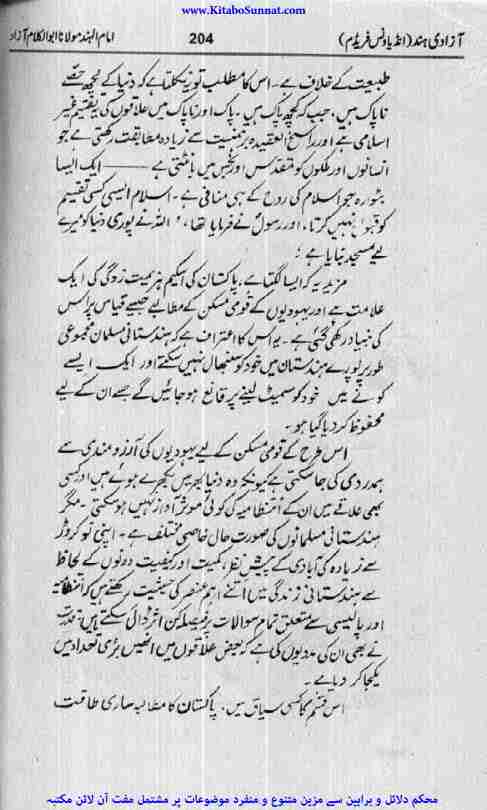 www.KitaboSunnat.com
آزادی ہند (انڈیا ونس فریڈم) 204 امام الہند مولانا ابوالکلام آزاد
طبیعت کے خلاف ہے۔ اس کا مطلب تو یہ نکلتا ہے کہ دنیا کے کچھ حصّے
ناپاک ہیں، جب کہ کچھ پاک ہیں۔ پاک اور ناپاک میں علاقوں کی یہ تقسیم غیر
اسلامی ہے اور راسخ العقیدہ برہمنیت سے زیادہ مطابقت رکھتی ہے جو
انسانوں اور ملکوں کو مقدس اور نجس میں بانٹتی ہے ــــــ ایک ایسا
بٹوارہ جو اسلام کی روح کے ہی منافی ہے۔ اسلام ایسی کسی تقسیم
کو قبول نہیں کرتا، اور رسولؐ نے فرمایا تھا، ’اللہ نے پوری دنیا کو میرے
لیے مسجد بنایا ہے‘؛
مزید یہ کہ ایسا لگتا ہے، پاکستان کی اسکیم ہزیمت زدگی کی ایک
علامت ہے اور یہودیوں کے قومی مسکن کے مطالبے جیسے قیاس پر اس
کی بنیاد رکھی گئی ہے۔ یہ اس کا اعتراف ہے کہ ہندستانی مسلمان مجموعی
طور پر پورے ہندستان میں خود کو سنبھال نہیں سکتے اور ایک ایسے
کونے میں خود کو سمیٹ لینے پر قانع ہو جائیں گے جسے ان کے لیے
محفوظ کر دیا گیا ہو۔
اس طرح کے قومی مسکن کے لیے یہودیوں کی آرزومندی سے
ہمدردی کی جا سکتی ہے کیونکہ وہ دنیا بھر میں بکھرے ہوئے ہیں اور کسی
بھی علاقے میں ان کے انتظامیہ کی کوئی موثر آواز نہیں ہو سکتی۔ مگر
ہندستانی مسلمانوں کی صورت حال خاصی مختلف ہے۔ اپنی نو کروڑ
سے زیادہ کی آبادی کے پیش نظر، کمیت اور کیفیت دونوں کے لحاظ
سے ہندستانی زندگی میں اتنے اہم عنصر کی حیثیت رکھتے ہیں کہ انتظامیہ
اور پالیسی سے متعلق تمام سوالات پر فیصلہ کن اثر ڈال سکتے ہیں۔ قدرت
نے بھی ان کی مدد یوں کی ہے کہ بعض علاقوں میں انھیں بڑی تعداد میں
یکجا کر دیا ہے۔
اس قسم کے کسی سیاق میں، پاکستان کا مطالبہ ساری طاقت
محکم دلائل و براہین سے مزین متنوع و منفرد موضوعات پر مشتمل مفت آن لائن مکتبہ